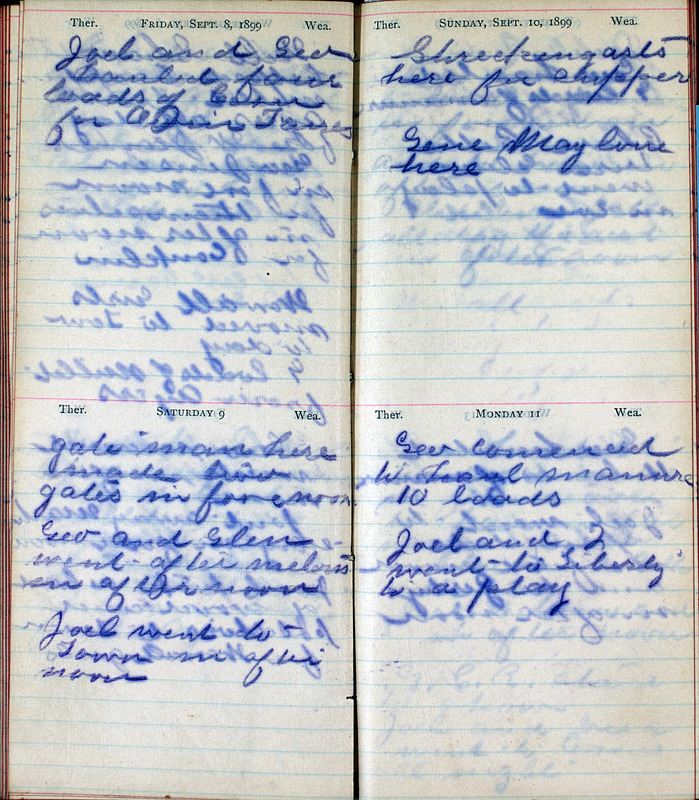 Ther. FRIDAY, SEPT. 8, 1899 Wea.
Joel and Geo
hauled four
loads of Corn
for
Ther. SATURDAY 9 Wea.
gate man here
made two
gates in forenoon
Geo and Glen
went after melons
in afternoon
Joel went to
Town in after
noon
Ther. SUNDAY, SEPT. 10, 1899 Wea.
Shreckengasts
here for chipper
Gene May love
here
Ther. MONDAY 11 Wea.
Geo comenced
to haul manure
10 loads
Joel and I
went to Liberty
to a play